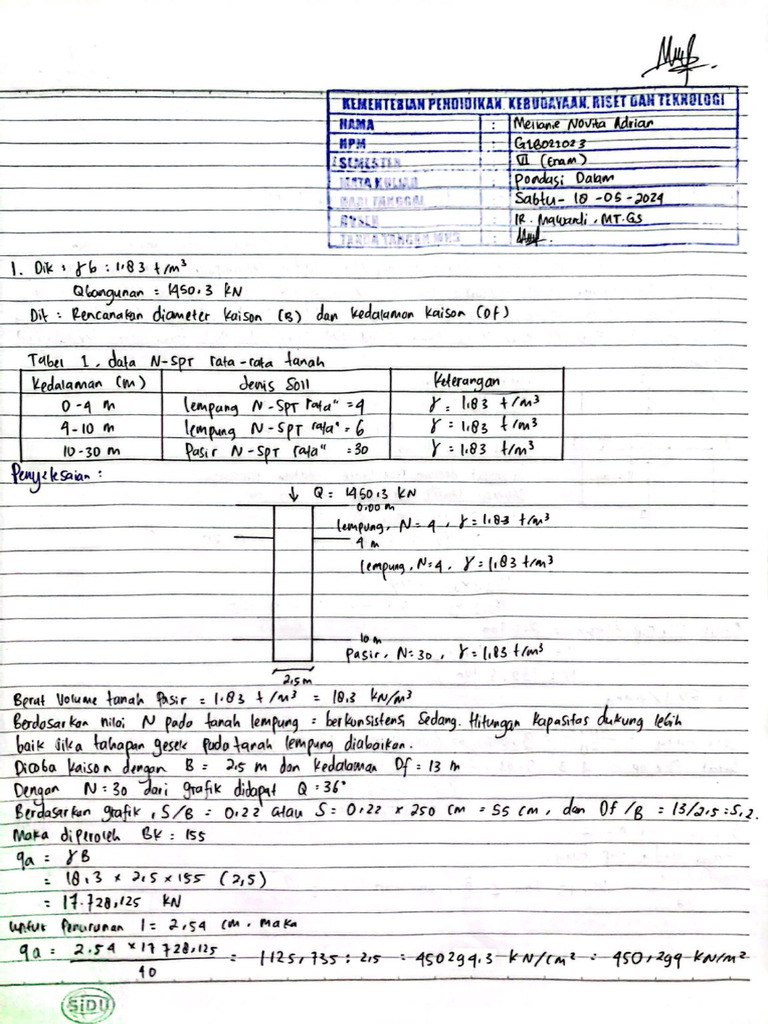 KEMENTERIAN PENDIDIKAN, KEBUDAYAAN, RISET DAN TEKNOLOGI
NAMA : Mellanie Novita Adrian
NPM : G1B021023
SEMESTER : VI (Enam)
MATA KULIAH : Pondasi Dalam
HARI TANGGAL : Sabtu - 18 - 05 - 2024
: IR. Mawardi, MT.GS
TANDA TANGAN MHS :
1. Dik : γb : 1,83 t/m³
Qbangunan = 1450.3 KN
Dit : Rencanakan diameter kaison (B) dan kedalaman kaison (Df)
Tabel 1. data N-SPT rata-rata tanah
Kedalaman (m) Jenis Soil Keterangan
0-4 m lempung N-SPT rata" = 4 γ = 1,83 t/m³
4-10 m lempung N-SPT rata" = 6 γ = 1,83 t/m³
10-30 m Pasir N-SPT rata" = 30 γ = 1,83 t/m³
Penyelesaian :
↓ Q = 1450.3 KN
0.00 m
lempung, N = 4, γ = 1,83 t/m³
4 m
lempung, N=4, γ = 1,83 t/m³
10 m
Pasir, N=30, γ = 1,83 t/m³
2,5 m
Berat Volume tanah Pasir = 1.83 t/m³ = 18.3 KN/m³
Berdasarkan nilai N pada tanah lempung = berkonsistensi Sedang. Hitungan kapasitas dukung lebih
baik jika tahapan gesek pada tanah lempung diabaikan.
Dicoba kaison dengan B = 2,5 m dan kedalaman Df = 13 m
Dengan N = 30 dari grafik didapat Q = 36°
Berdasarkan grafik, S/B = 0.22 atau S = 0.22 × 250 cm = 55 cm, dan Df/B = 13/2.5 = 5,2.
Maka diperoleh BK = 155
qa = γ B
= 18.3 × 2,5 × 155 (2,5)
= 17.728,125 KN
Untuk Penurunan 1 = 2,54 cm. maka
qa = 2.54 × 17728,125 / 40 = 1125,735 : 2,5 = 450294,3 KN/cm² = 450,299 KN/m²
SiDU